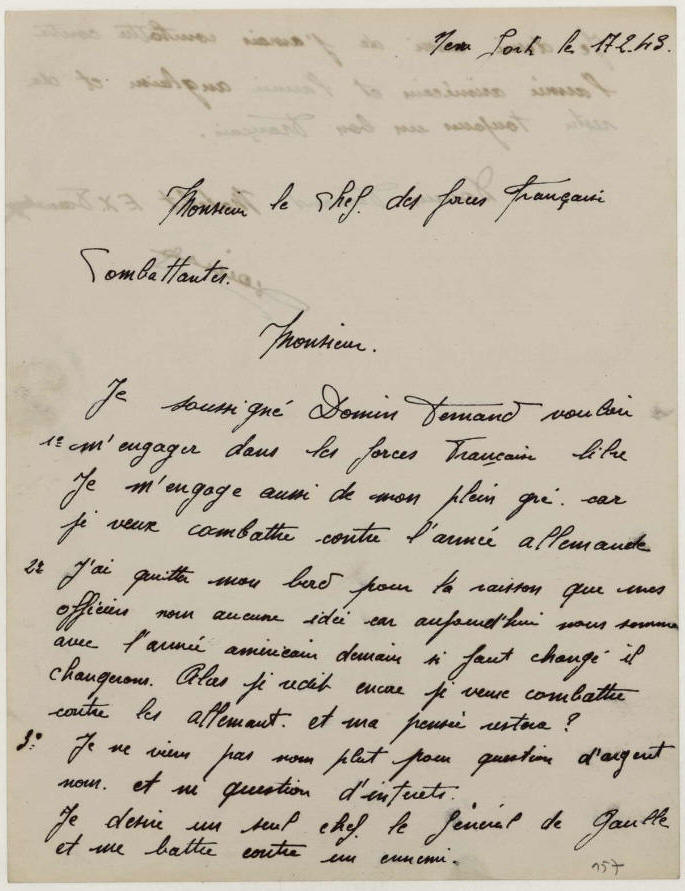 New York le 17.2.43.
Monsieur le Chef. des forces Française
Combattantes.
Monsieur.
Je soussigné Domin Fernand vouloir
1e m'engager dans les forces Française libre
Je m'engage aussi de mon plein gré. car
je veux combattre contre l'armée allemande
2e J'ai quitter mon bord pour la raison que mes
officiers nom aucune idée car aujourd'hui nous somme
avec l'armée américain demain si faut changé il
changerons. Alas je redit encore je veux combattre
contre les allemant. et ma pensée restera ?
3e Je ne viens pas nom plut pour question d'argent
nom. et ne question d'interets.
Je desire un seul chef. le Général de Gaulle
et me battre contre un ennemi.
157